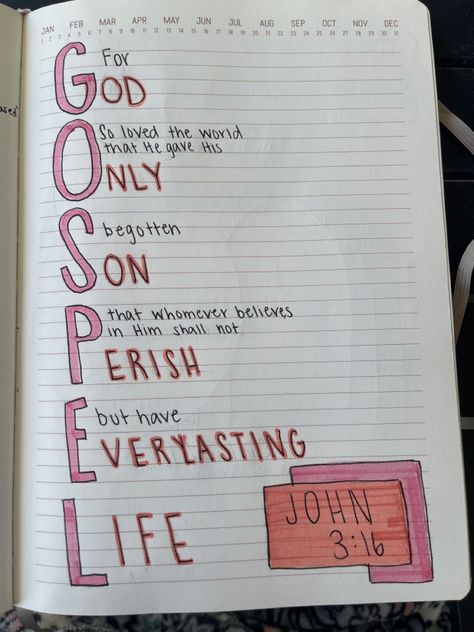 JAN FEB MAR APR MAY JUN JUL AUG SEP OCT NOV DEC
1 2 3 4 5 6 7 8 9 10 11 12 13 14 15 16 17 18 19 20 21 22 23 24 25 26 27 28 29 30 31
For
GOD
So loved the world
that He gave His
ONLY
begotten
SON
that whomever believes
in Him shall not
PERISH
but have
EVERLASTING
LIFE
JOHN
3:16